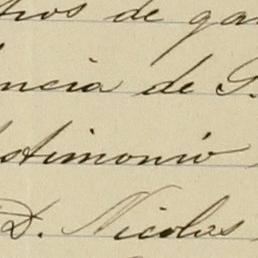 tros de ga
ncia de S.
stimonio
D. Nicolas